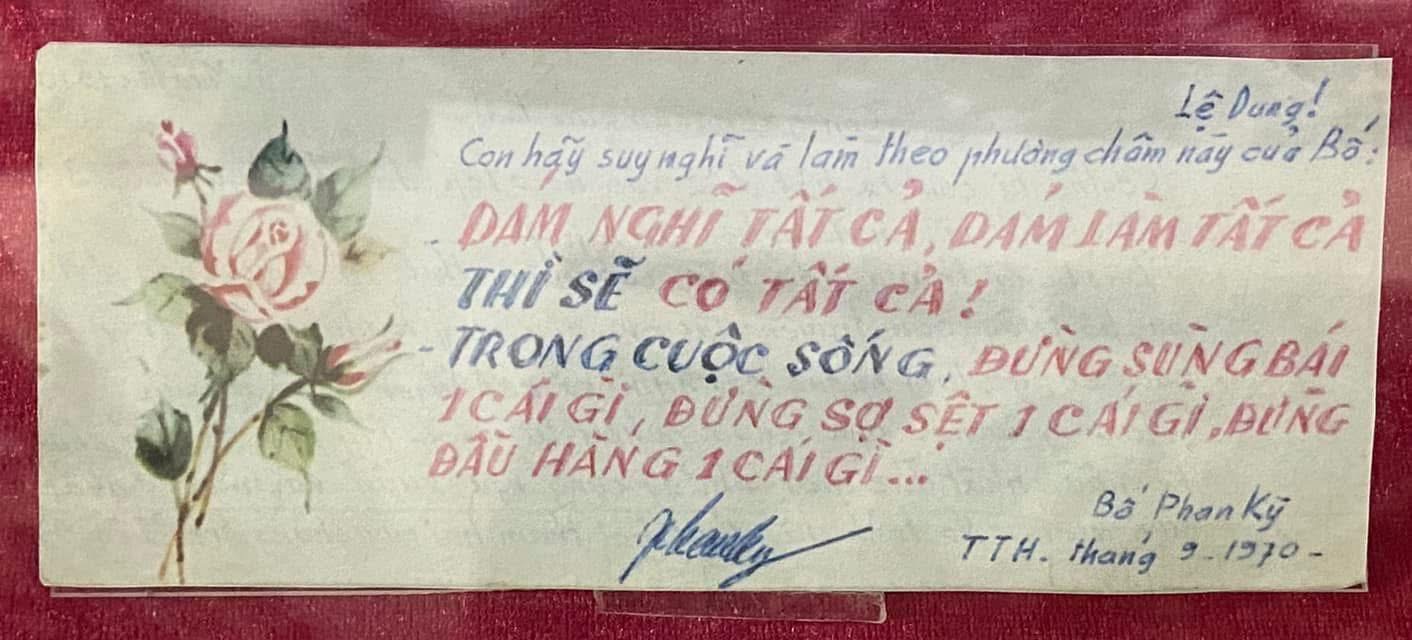 Lệ Dung!
Con hãy suy nghĩ và làm theo phương châm này của Bố:
- DÁM NGHĨ TẤT CẢ, DÁM LÀM TẤT CẢ
THÌ SẼ CÓ TẤT CẢ!
- TRONG CUỘC SỐNG, ĐỪNG SÙNG BÁI
1 CÁI GÌ, ĐỪNG SỢ SỆT 1 CÁI GÌ, ĐỪNG
ĐẦU HÀNG 1 CÁI GÌ...
Bố Phan Kỹ
TTH. tháng 9-1970-